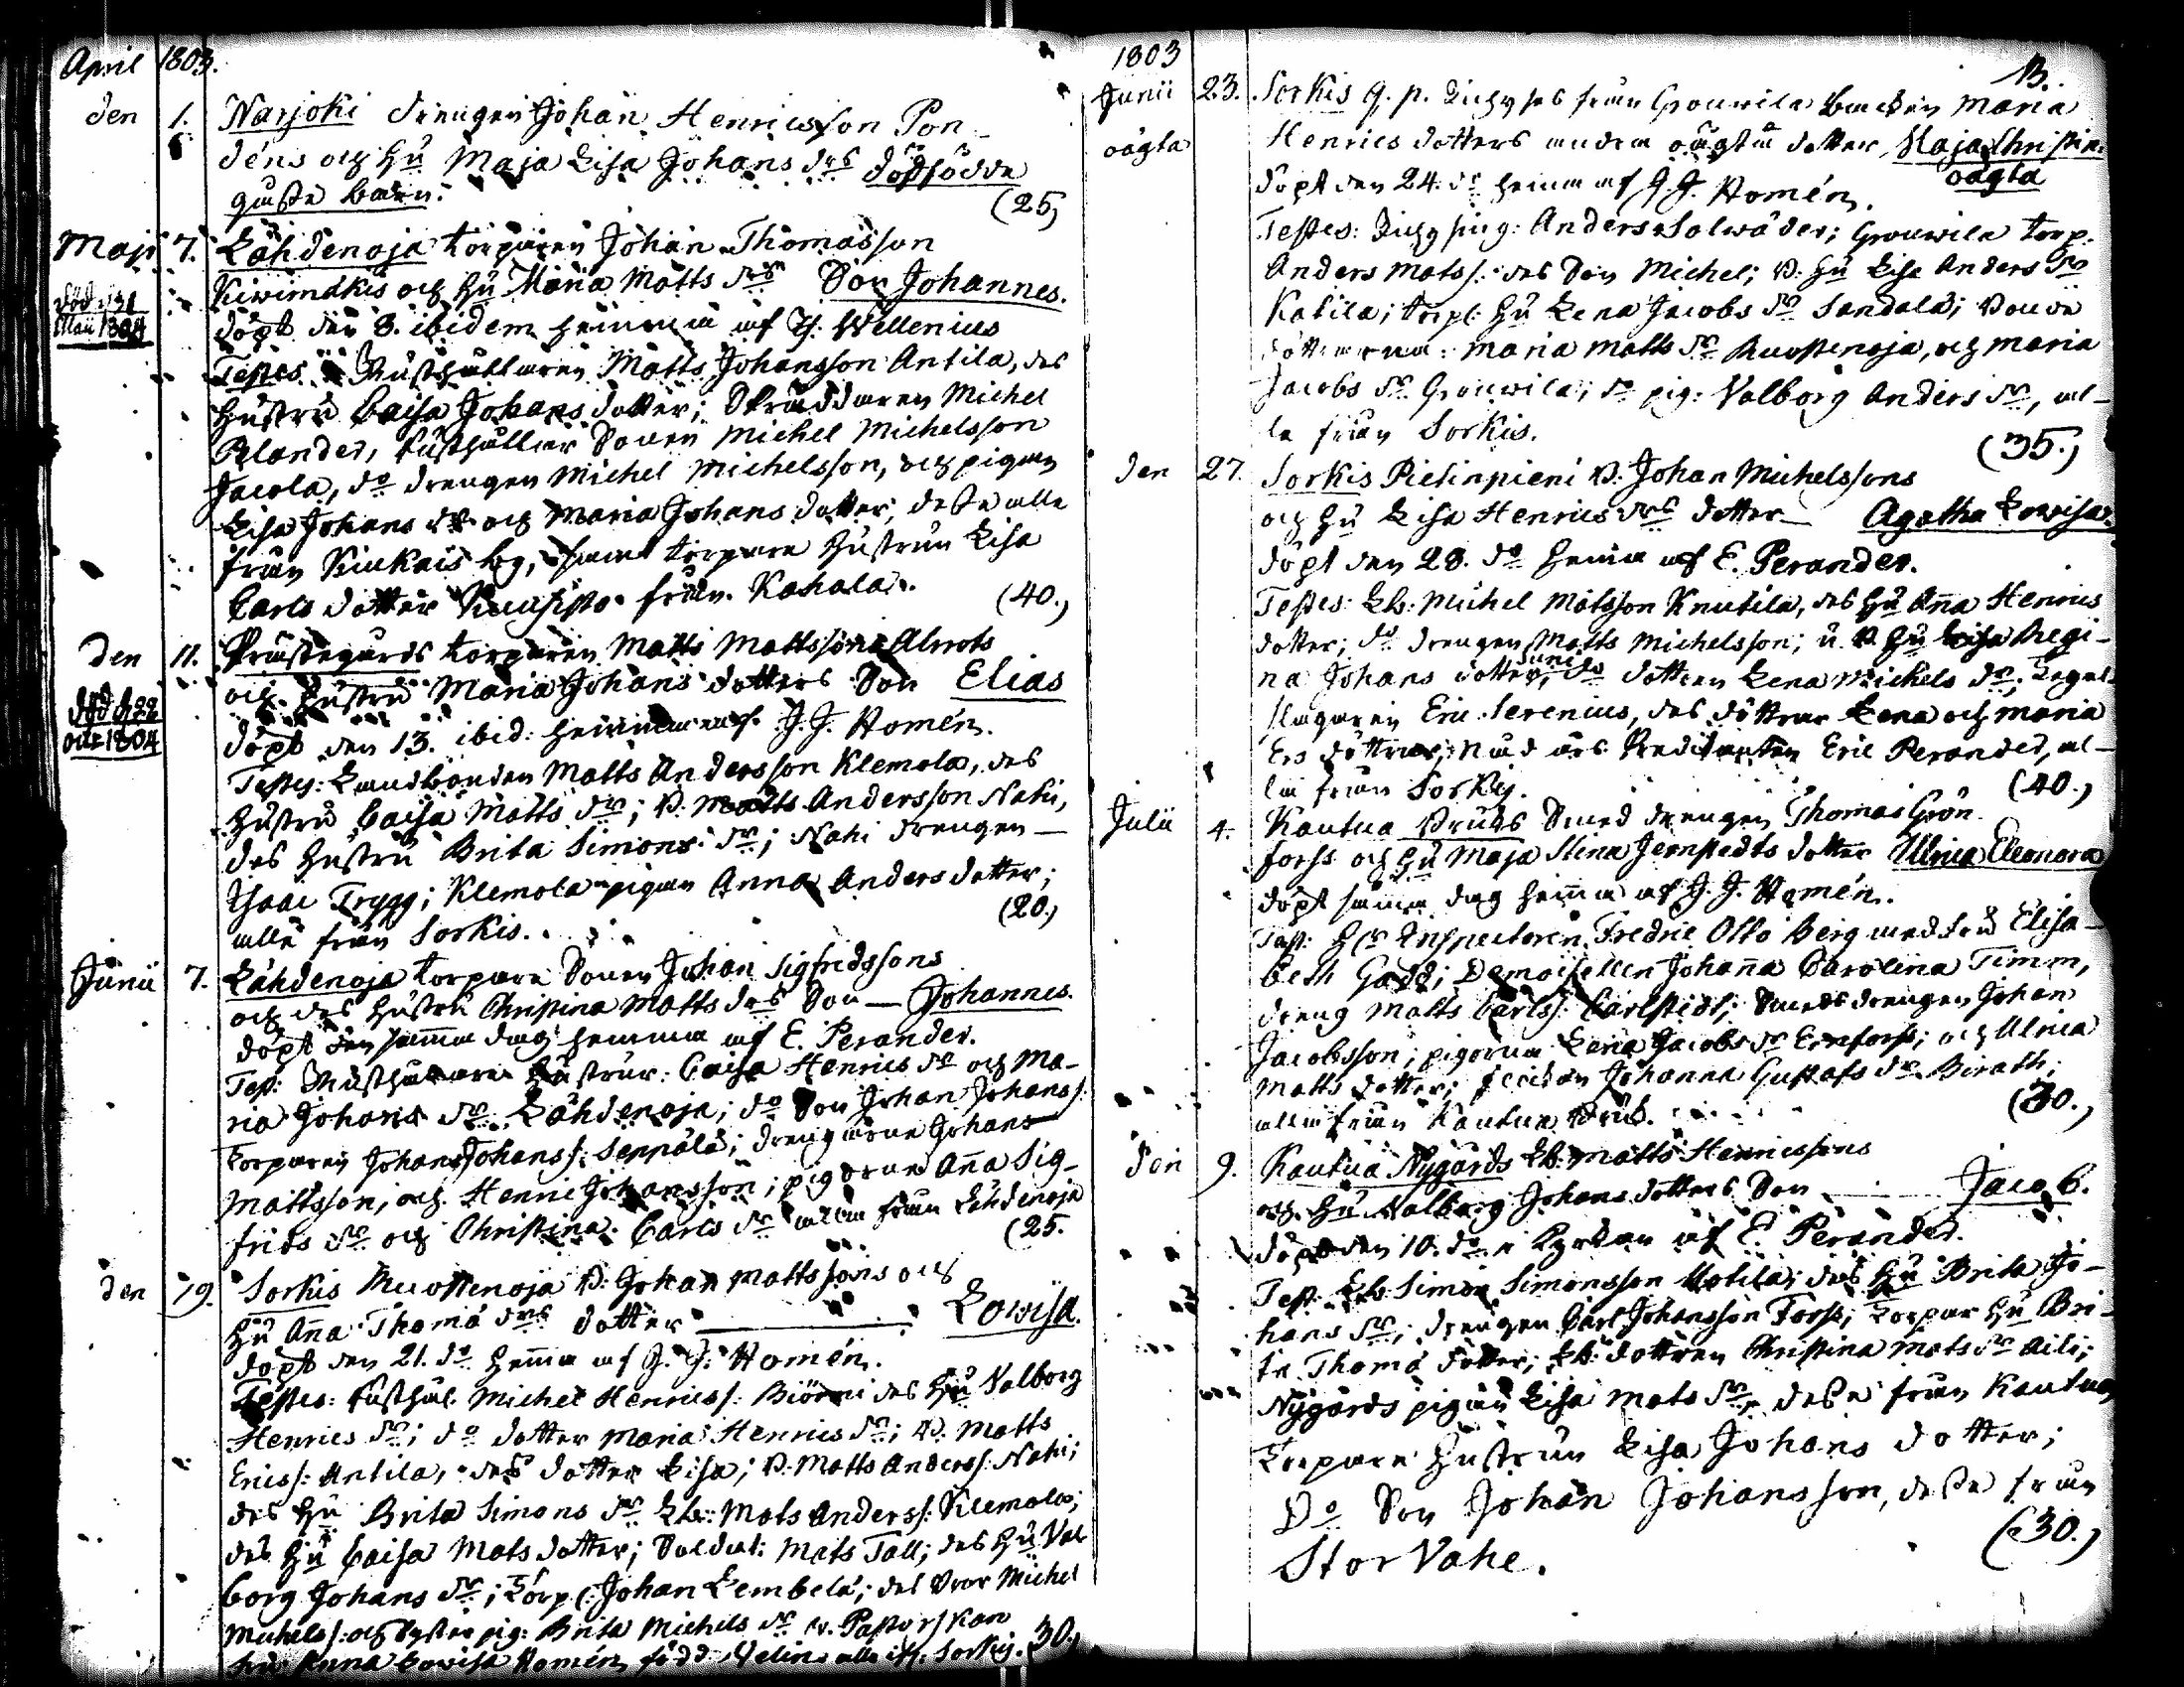 April 1803.
den 1. Narjoki drengen Johan Henricsson Pon-
déns och Hu Maja Lisa Johans drs dödfödde
gosse barn. (25)
Maji 7. Lähdenoja torparen Johan Thomasson
Kiwimäkis och Hu Maria Matts drs Son Johannes.
död d. 31
Maii 1804
döpt den 8. ibidem hemma af Th. Wellenius
Testes Rusthållaren Matts Johansson Antila, des
hustru Caisa Johans dotter; Skräddaren Michel
Relander, Rusthållare Sonen Michel Michelsson
Jacola, do drengen Michel Michelsson, och pigan
Lisa Johans dr och Maria Johans dotter, desse alle
från Kiukais by, samt torpare hustrun Lisa
Carls dotter från Kahala. (40.)
den 11. Prästegårds torparen Matts Mattssons Alrots
och hustru Maria Johans dotters Son Elias
död d. 22
oct 1804
döpt den 13. ibid: hemma af J. J. Homén.
Testes: Landbonden Matts Andersson Klemola, des
hustru Caisa Matts dr; B. Matts Andersson Nahi,
des hustru Brita Simons dr; Nahi drengen
Isaac Trygg; Klemola pigan Anna Anders dotter;
alle från Sorkis. (20.)
Junii 7. Lähdenoja torpare Sonen Johan Sigfredssons
och des hustru Christina Matts drs Son — Johannes.
döpt den samma dag hemma af E. Perander.
Test: Rusthållare hustrur: Caisa Henrics dr och Ma-
ria Johans dr Lähdenoja; do Son Johan Johanss:
torparen Johan Johanss: Seppälä; drengarne Johan
Mattsson, och Henric Johansson; pigorna Anna Sig-
frids dr och Christina Carls dr alla från Lähdenoja
(25.
den 19. Sorkis Ruottenoja B: Johan Mattssons och
Hu Anna Thomæ drs dotter — Lowisa.
döpt den 21. do hemma af J. J. Homén.
Testes: Rusthål. Michel Henricss: Biörni des Hu Valborg
Henrics dr; do dotter Maria Henrics dr; B. Matts
Ericss: Antila, des dotter Lisa; B. Matts Anderss: Nahi;
des Hu Brita Simons dr Lb: Mats Anderss: Klemola;
des Hu Caisa Mats dotter; Soldat: Mats Tall; des Hu Val
borg Johans dr; Torp: Johan Lembelä; des Bror Michel
Michelss: och Syster pig: Brita Michels dr v. Pastorskan
fru Anna Lowisa Homén född Welin alle ifr. Sorkis. (30.)
1803
13.
Junii 23. Sorkis q. p. från Grouwila backen Maria
oägta Henrics dotters andra oägta dotter Maja Christina
oägta
döpt den 24. do hemma af J. J. Homén.
Testes: Anders Solwäder; Grouwila torp.
Anders Matss: des Son Michel; B. Hu Lisa Anders dr
Katila; torp: Hu Lena Jacobs dr Sandala; Bonde
döttrarna: Maria Matts dr Ruottenoja, och Maria
Jacobs dr Grouwila; do pig: Valborg Anders dr, al-
la från Sorkis. (35.)
den 27. Sorkis Pietinpieni B: Johan Michelssons
och Hu Lisa Henrics drs dotter — Agatha Lowisa.
döpt den 28. do hemma af E. Perander.
Testes: Lb: Michel Matsson Knutila, des Hu Anna Henrics
dotter; do drengen Matts Michelsson; u. B. Hu Regi-
na Johans dotter; do dottren Lena Michels dr; Tegel-
slagaren Eric Serenius, des döttrar Lena och Maria
Ers döttrar; Nåd års Predikanten Eric Perander, al-
la från Sorkis. (40.)
Julii 4. Kautua Bruks Smed drengen Thomas Grön-
forss och Hu Maja Stina Jernstedts dotter Ulrica Eleonora
döpt samma dag hemma af J. J. Homén.
Test: Hr Inspectoren Fredric Otto Berg med fru Elisa-
beth Gadd; Demoisellen Johanna Carolina Timm,
dreng Matts Carlss: Carlstedt; Smeds drengen Johan
Jacobsson; pigorna Lena Jacobs dr Ernforss; och Ulrica
Matts dotter; Johanna Gustafs dr Birath;
alla från Kautua Bruk. (30.)
den 9. Kautua Nygårds Lb: Matts Henricssons
och Hu Walborg Johans dotters Son — Jacob.
döpt den 10. do i Kyrkan af E. Perander.
Test: Lb Simon Simonsson Uotila; des Hu Brita Jo-
hans dr; drengen Carl Johansson Forss; Torpar Hu Bri-
ta Thomæ dotter; Lb: dottren Christina Mats dr Aili;
Nygårds pigan Lisa Mats dr, desse från Kautua,
Torpare hustrun Lisa Johans dotter;
Do Son Johan Johansson, desse från
Stor Vahe. (30.)